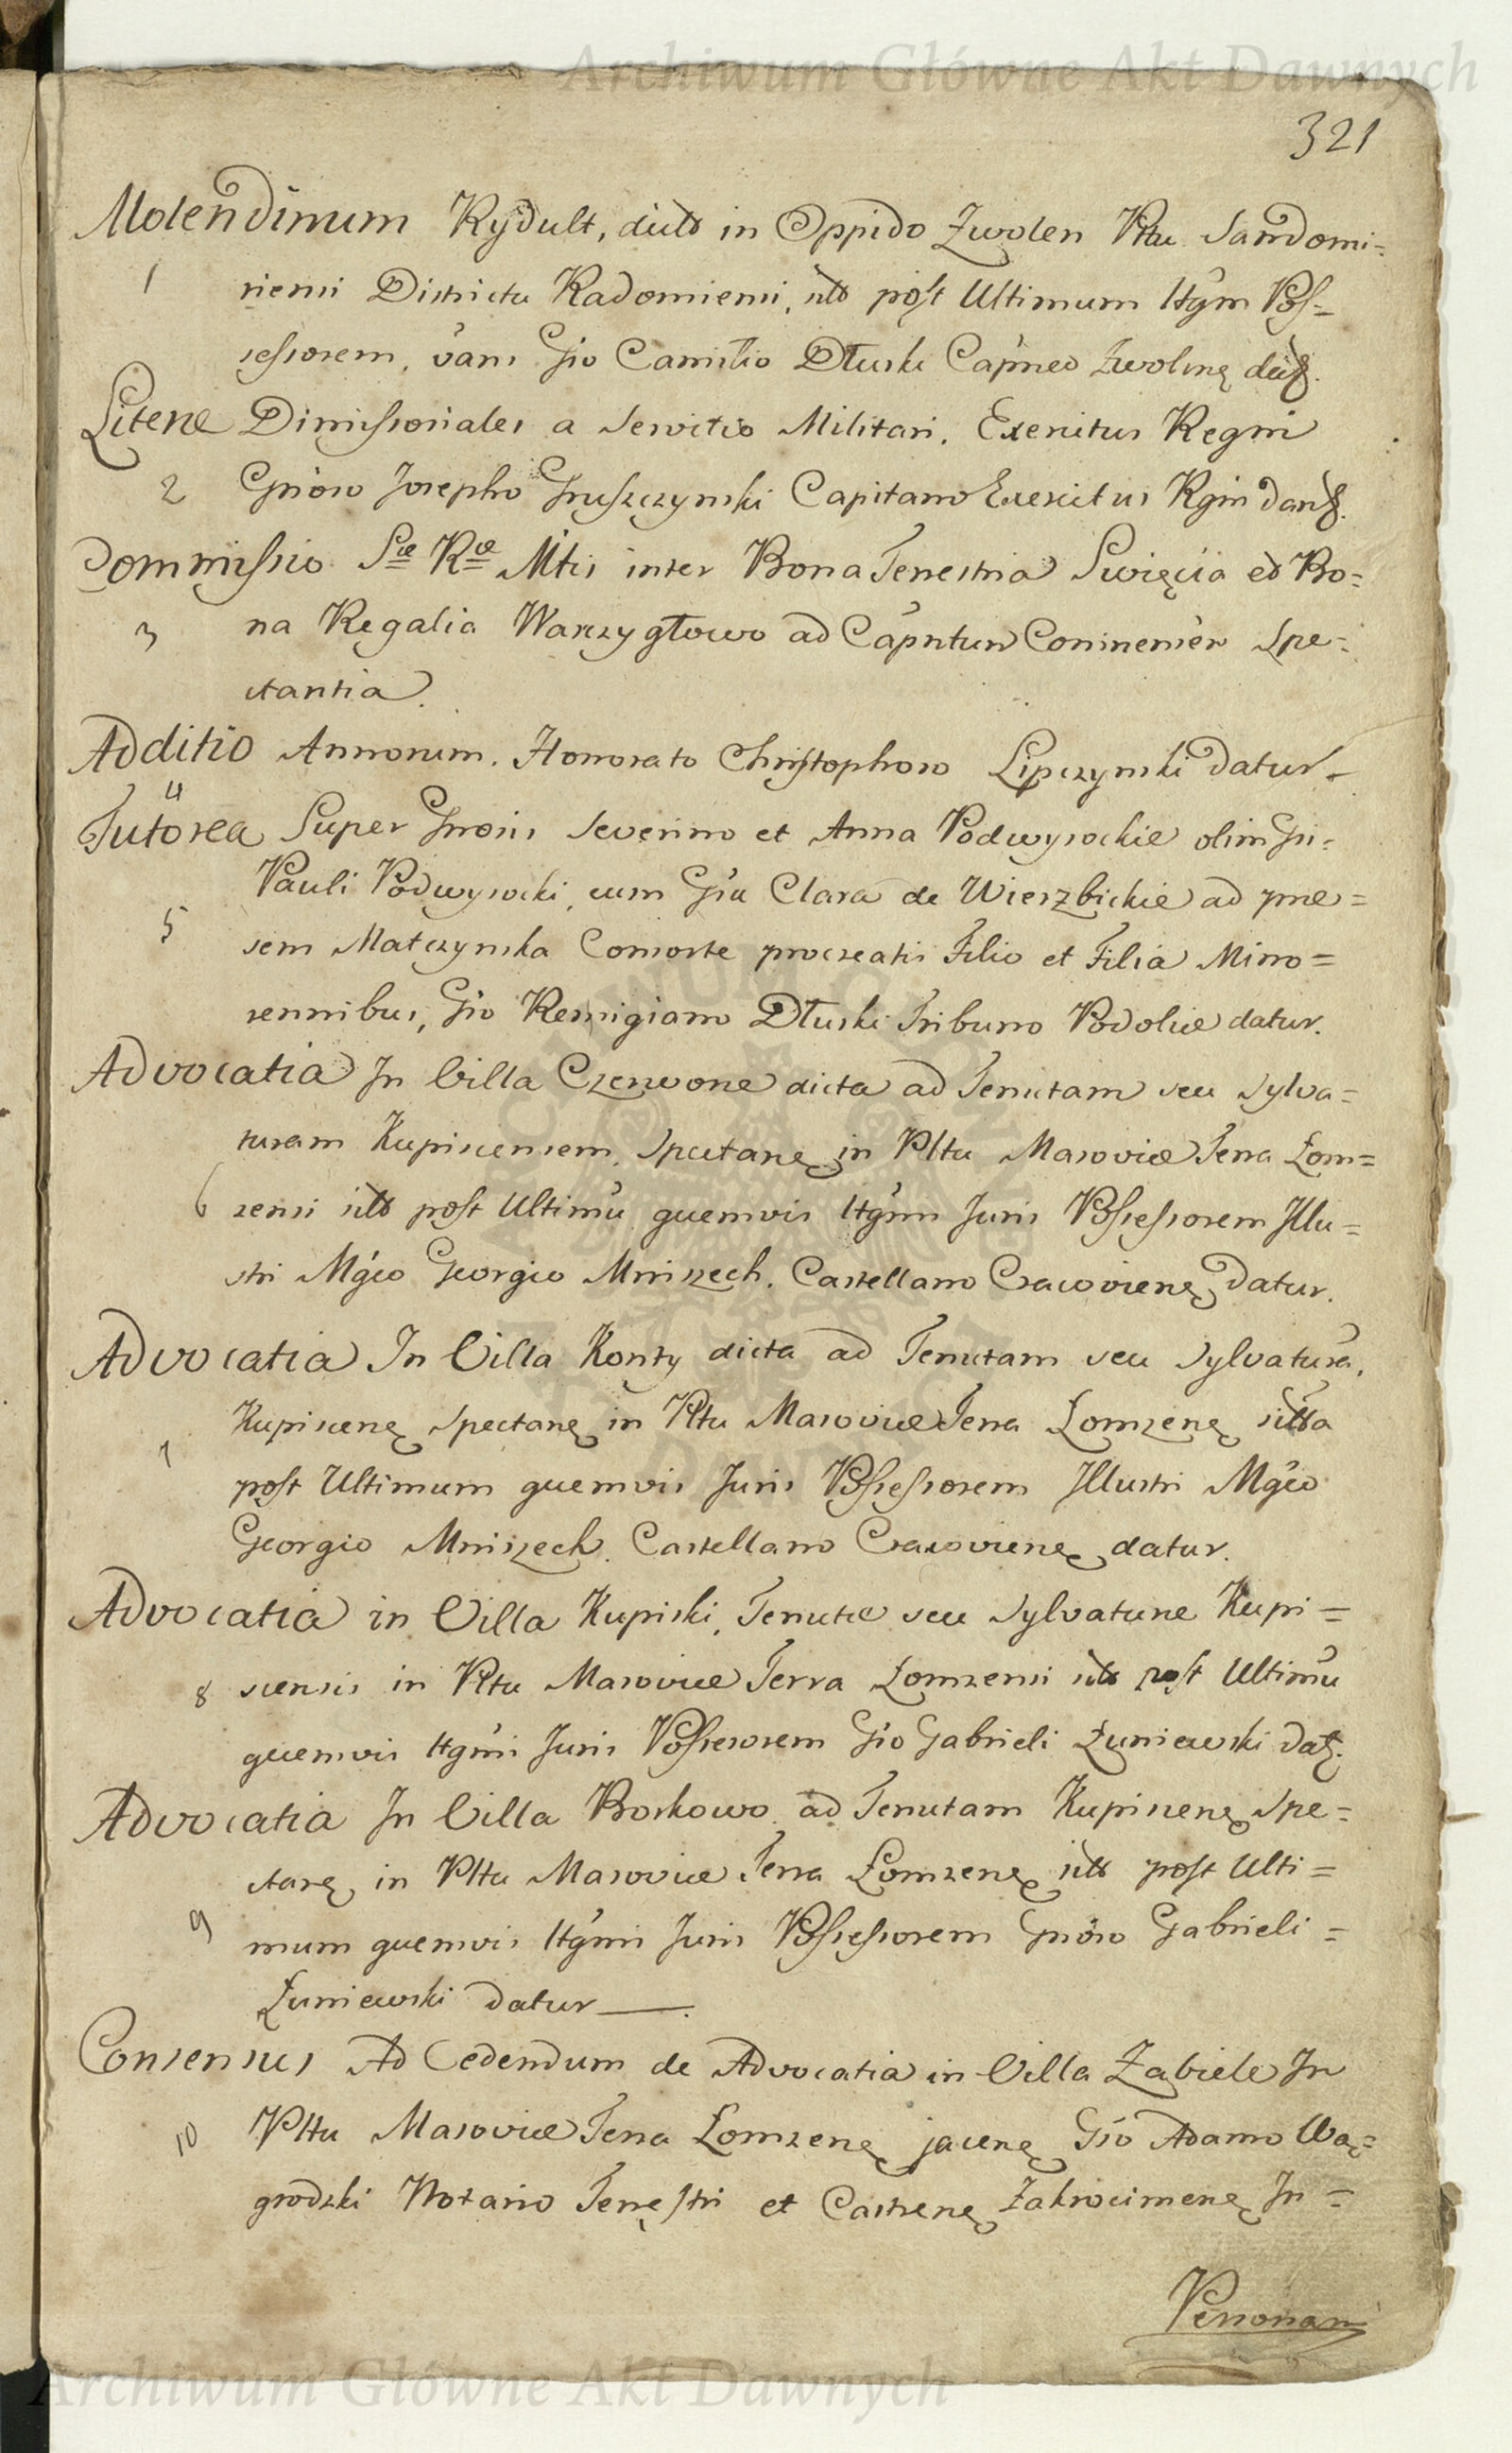 Archiwum Główne Akt Dawnych
321
Molendinum Rydult, dict in Oppido Zwolen Pltu Sandomi=
1 riensi Districtu Radomiensi, sit post Ultimum ltgm Pos=
sessorem, vani Gso Camillo Dłuski Capneo Zwolinę
Litere Dimissoriales a Servitio Militari, Exercitus Regni
2 Gnoso Josepho Gruszczynski Capitano Exercitus Rgni
Commissio Sæ Ræ Mtis inter Bona Terrestria Swięcia et Bo=
3 na Regalia Warzygłowo ad Capntum Coninensem Spe=
ctantia.
Additio Annorum. Honorato Christophoro Lipczynski datur.
4
Tutorea Super Gnosis Severino et Anna Podwysockie olim Gsi
Pauli Podwysocki, cum Gsa Clara de Wierzbickie ad præ=
5 sem Matczynska Consorte procreatis Filio et Filia Mino=
rennibus, Gso Remigiano Dłuski Tribuno Podoliæ datur.
Advocatia In Villa Czerwone dicta ad Tenutam seu Sylva=
turam Kupiscensem, Spectanę in Pltu Masoviæ Terra Łom=
6 zensi sit post Ultimū quemvis ltgmi Juris Possessorem Illu=
stri Mgco Georgio Mniszech, Castellano Cracovienę datur.
Advocatia In Villa Konty dicta ad Tenutam seu Sylvaturā,
Kupiscenę Spectanę in Pltu Masoviæ Terra Łomzenę sitta
7 post Ultimum quemvis Juris Possessorem Illustri Mgco
Georgio Mniszech. Castellano Cracovienę datur.
Advocatia in Villa Kupiski, Tenutæ seu Sylvaturæ Kupi=
8 scensis in Pltu Masoviæ Terra Łomzensi sit post Ultimū
quemvis ltgmi Juris Possessorem Gso Gabrieli Łuniewski datę.
Advocatia In Villa Boskowo ad Tenutam Kupiscenę Spe=
ctanę in Pltu Masoviæ Terra Łomzenę sit post Ulti=
9 mum quemvis ltgmi Juris Possessorem Gnoso Gabrieli =
Łuniewski datur.
Consensus Ad Cedendum de Advocatia in Villa Zabiele In
10 Pltu Masoviæ Terra Łomzenę jacenę Gso Adamo Wą=
grodzki Notario Terrestri et Castrenę Zakrocimenę In=
Personam
Archiwum Główne Akt Dawnych